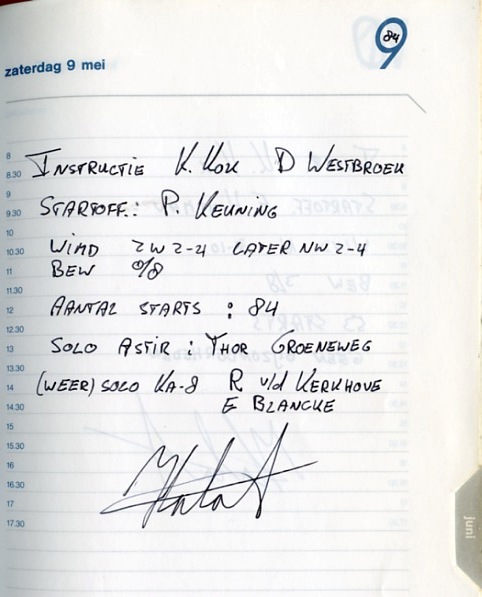 84
9
zaterdag 9 mei
8
8.30 INSTRUCTIE K. KOK D WESTBROEK
9
9.30 STARTOFF.: P. KEUNING
10
10.30 WIND ZW 2-4 LATER NW 2-4
11 BEW 0/8
11.30
12 AANTAL STARTS : 84
12.30
13 SOLO ASTIR : THOR GROENEWEG
13.30
14 (WEER) SOLO KA-8 R v/d KERKHOVE
14.30 E BLANCKE
15
15.30
16
16.30
17
17.30
juni